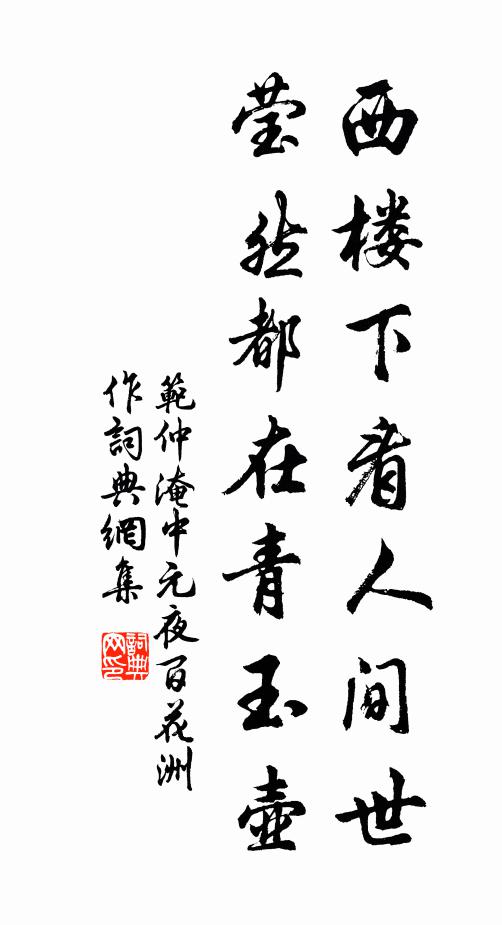 西楼下看人间世
莹然都在青玉壶
範仲淹中元夜百花洲
作詞典網集
詞典网印